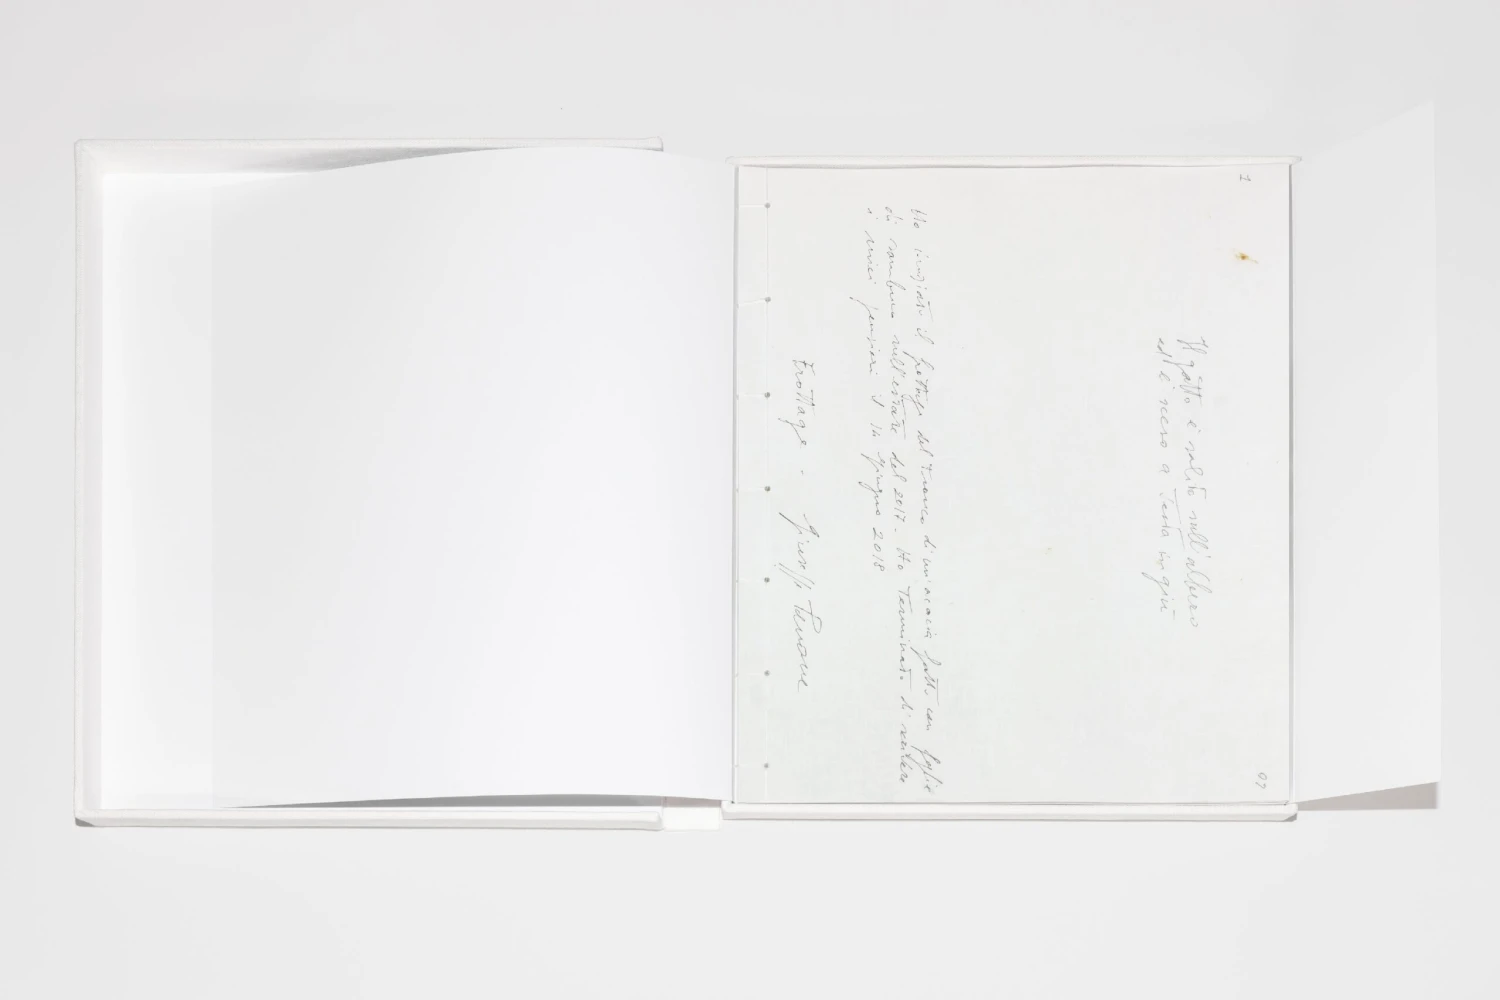 1
Il gatto è salito sull'albero
ed è sceso a testa in giù
Ho iniziato il frottage del tronco di un'acacia fatto con foglie
di sambuco nell'estate del 2017. Ho terminato di scrivere
i miei pensieri il 14 giugno 2018
Frottage - Giuseppe Penone